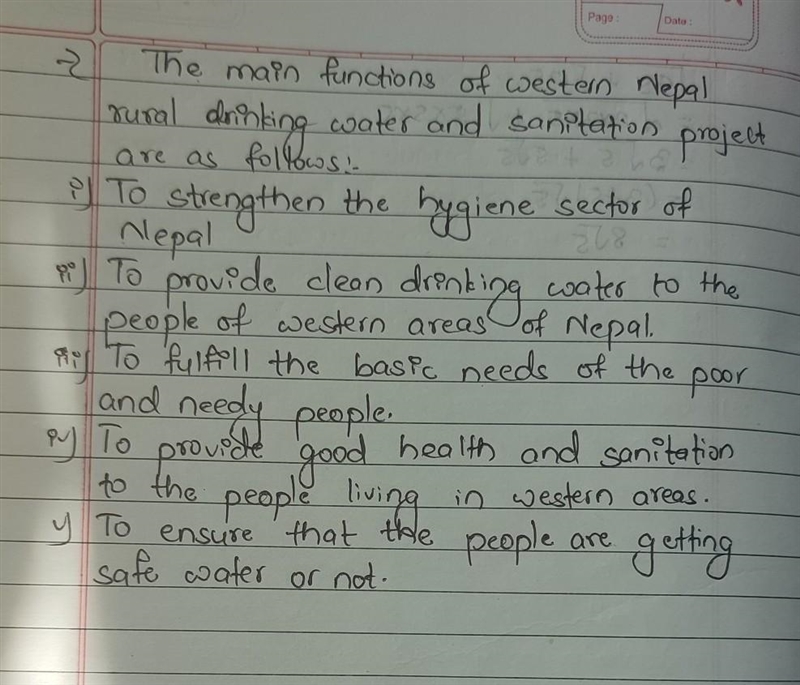 Page :
Date :
→ The main functions of western Nepal
rural drinking water and sanitation project
are as follows:-
i) To strengthen the hygiene sector of
Nepal
ii) To provide clean drinking water to the
people of western areas of Nepal.
iii) To fulfill the basic needs of the poor
and needy people.
iv) To provide good health and sanitation
to the people living in western areas.
v) To ensure that the people are getting
safe water or not.